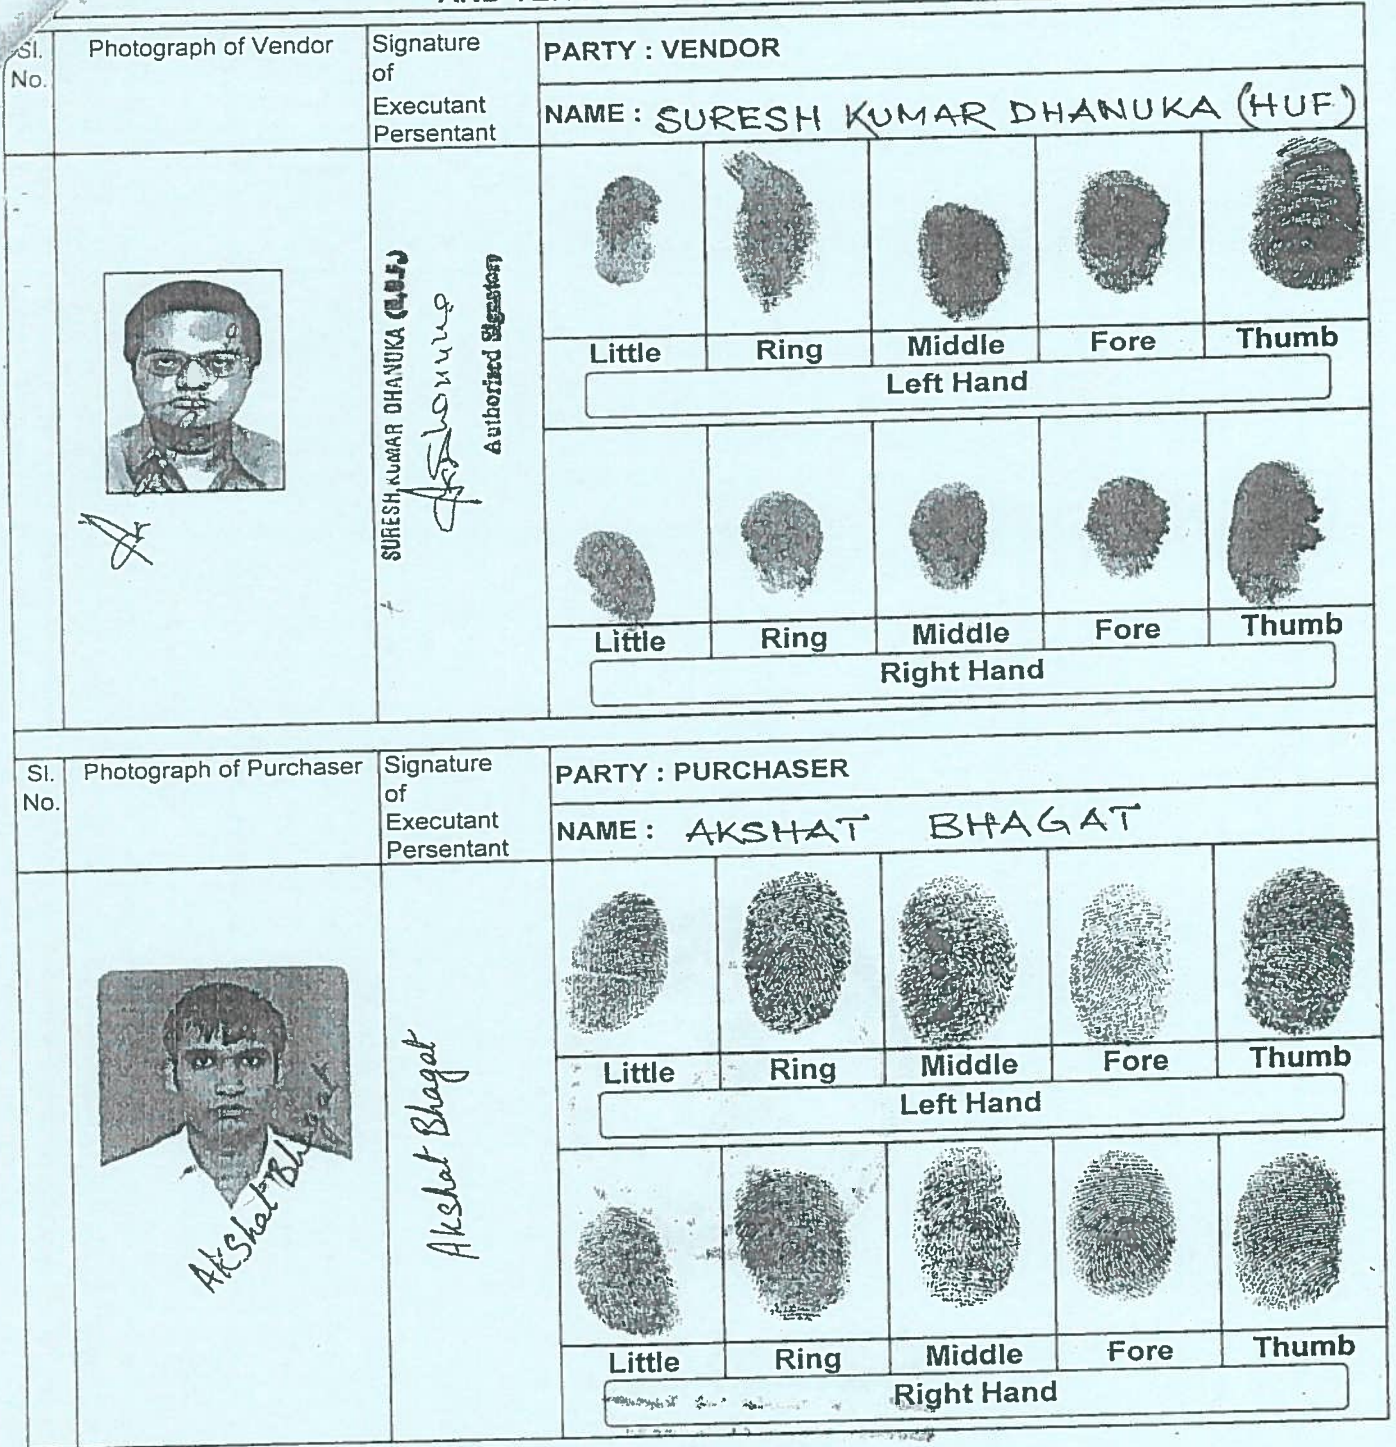 Sl.
No.
Photograph of Vendor
Signature
of
Executant
Persentant
PARTY : VENDOR
NAME : SURESH KUMAR DHANUKA (HUF)
SURESH KUMAR DHANUKA (H.U.F.)
Authorised Signatory
Little Ring Middle Fore Thumb
Left Hand
Little Ring Middle Fore Thumb
Right Hand
Sl.
No.
Photograph of Purchaser
Signature
of
Executant
Persentant
PARTY : PURCHASER
NAME : AKSHAT BHAGAT
Akshat Bhagat
Akshat Bhagat
Little Ring Middle Fore Thumb
Left Hand
Little Ring Middle Fore Thumb
Right Hand